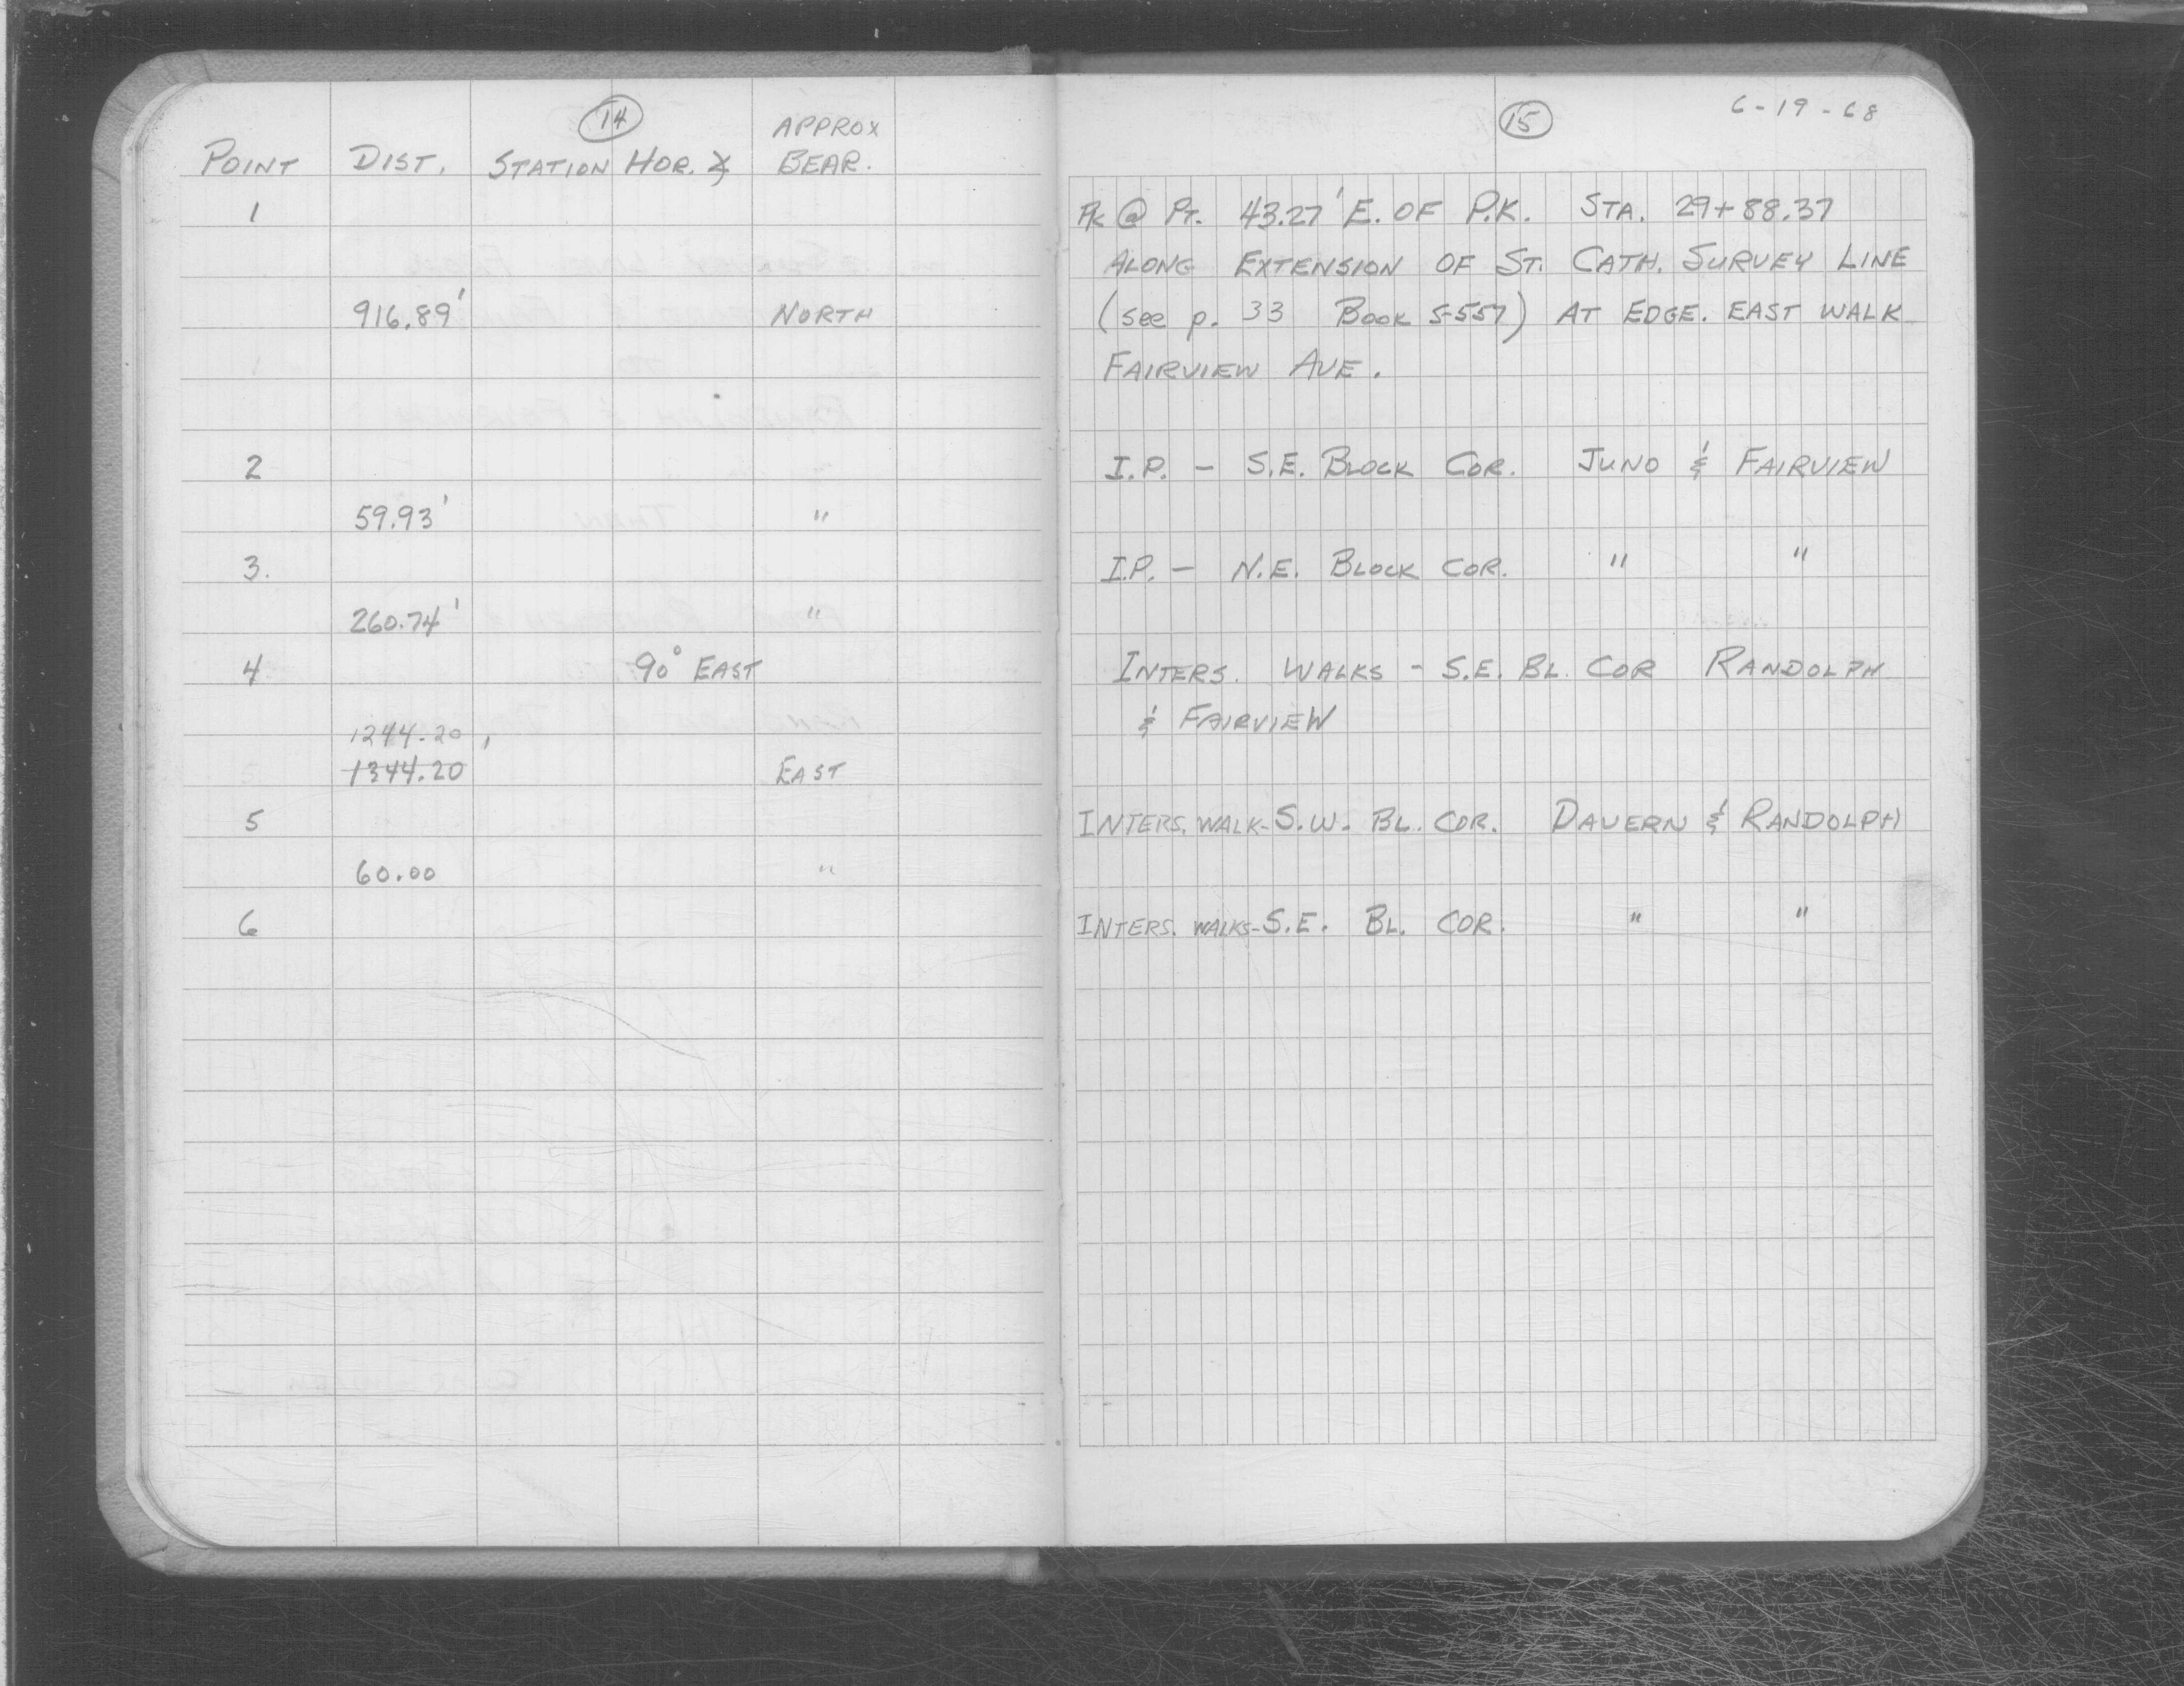 14
APPROX
POINT DIST. STATION HOR. ∡ BEAR.
1
916.89' NORTH
2
59.93' "
3.
260.74' "
4 90° EAST
1244.20'
1344.20 EAST
5
60.00 "
6
15
6-19-68
PK @ PT. 43.27' E. OF P.K. STA. 29+88.37
ALONG EXTENSION OF ST. CATH. SURVEY LINE
(see p. 33 BOOK S-557) AT EDGE. EAST WALK
FAIRVIEW AVE.
I.P. - S.E. BLOCK COR. JUNO & FAIRVIEW
I.P. - N.E. BLOCK COR. " "
INTERS. WALKS - S.E. BL. COR RANDOLPH
& FAIRVIEW
INTERS. WALK- S.W. BL. COR. DAVERN & RANDOLPH
INTERS. WALKS- S.E. BL. COR. " "